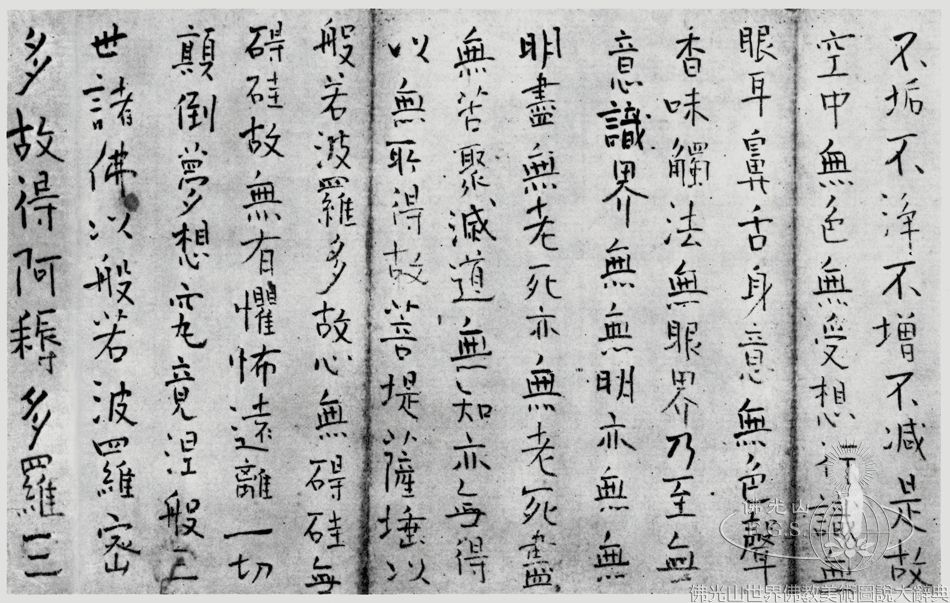 不垢不净不增不减是故
空中無色無受想行識無
眼耳鼻舌身意無色聲
香味觸法無眼界乃至無
意識界無無明亦無無
明盡無老死亦無老死盡
無苦聚滅道無知亦無得
以無所得故菩堤薩埵以
般若波羅多故心無碍硅無
碍硅故無有懼怖遠離一切
顛倒夢想究竟涅般三
世諸佛以般若波羅密
多故得阿耨多羅三
佛光山
佛光山世界佛教美術圖說大辭典